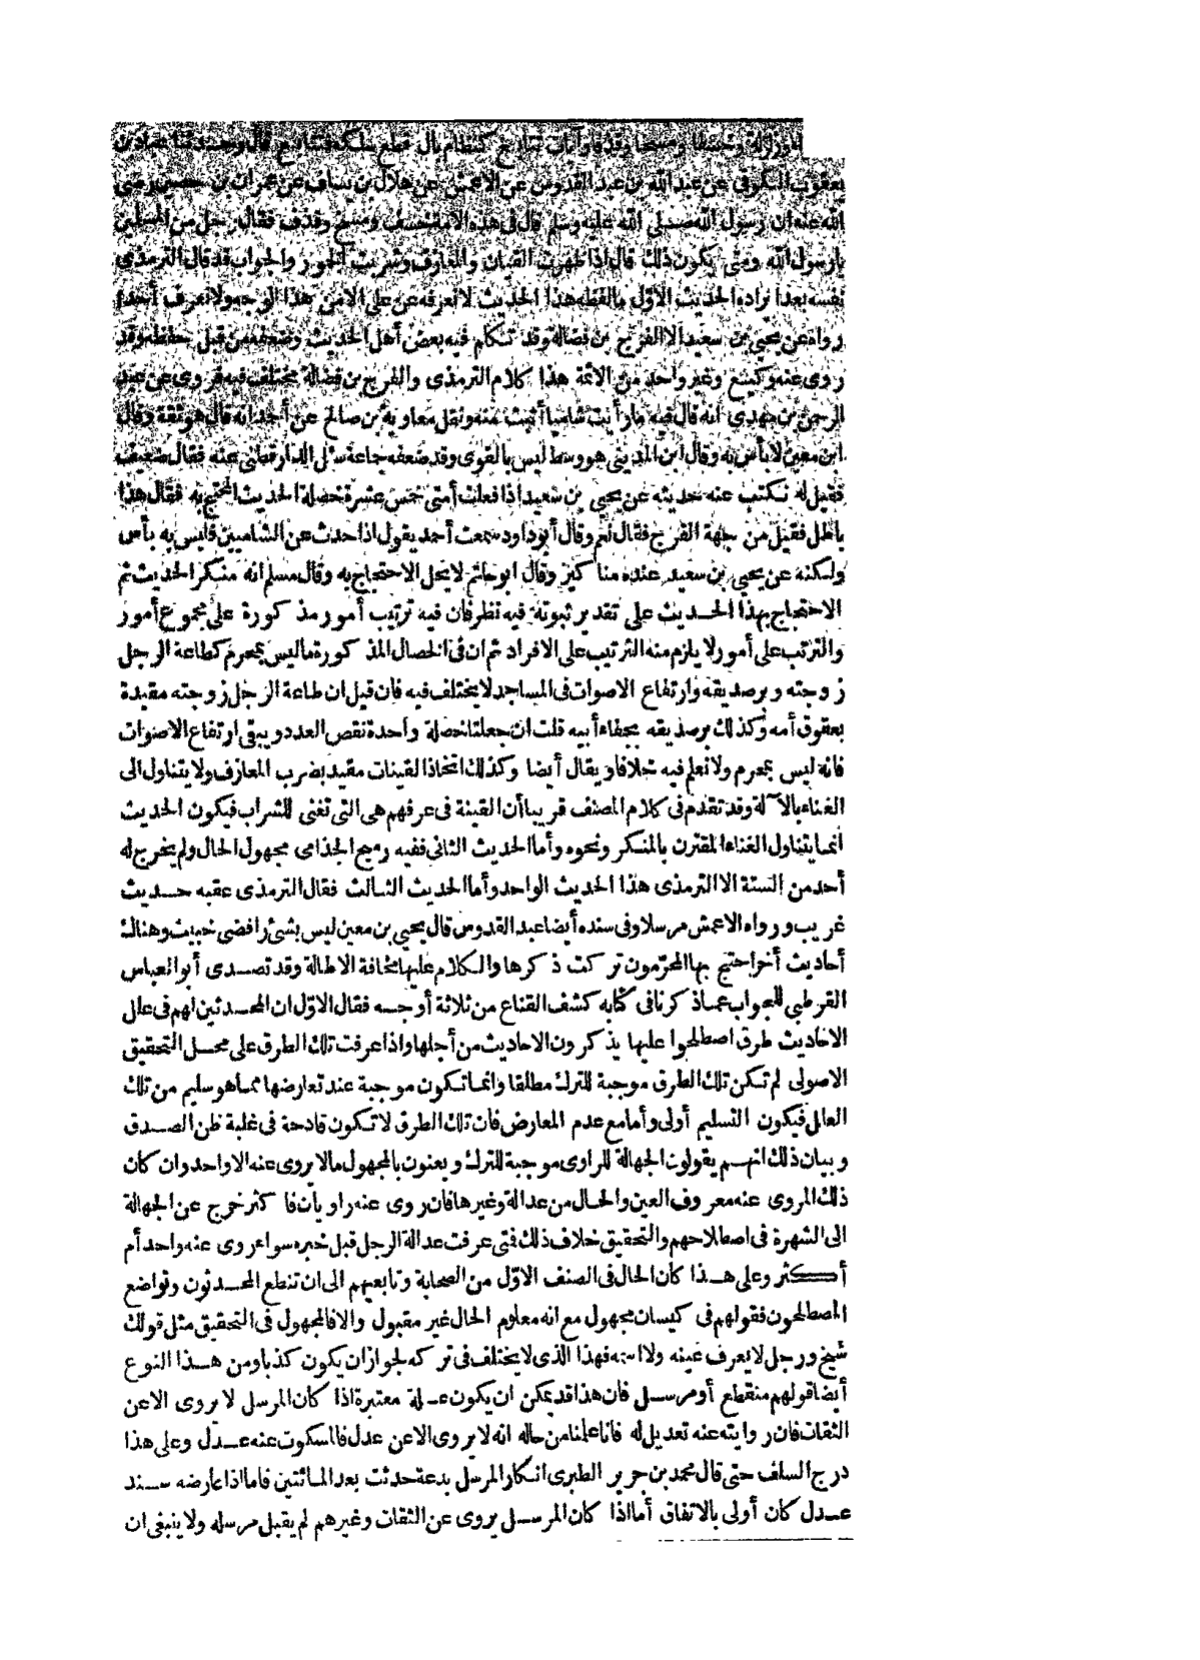 وزلزلة وخسفا ومسخا وقذفا وآيات تتابع كنظام بال قطع سلكه فتتابع قال وحدثنا عباد بن
يعقوب الكوفى عن عبد الله بن عبد القدوس عن الاعمش عن هلال بن يساف عن عمران بن حصين رضى
الله عنه ان رسول الله صلى الله عليه وسلم قال فى هذه الامة خسف ومسخ وقذف فقال رجل من المسلمين
يا رسول الله ومتى يكون ذلك قال اذا ظهرت القيان والمعازف وشربت الخمور والجواب قد قال الترمذى
نفسه بعد ايراده الحديث الاول بلفظه هذا الحديث لا نعرفه عن على الا من هذا الوجه ولا نعرف أحدا
رواه عن يحيى بن سعيد الا الفرج بن فضالة وقد تكلم فيه بعض أهل الحديث وضعفه من قبل حفظه وقد
روى عنه وكيع وغير واحد من الائمة هذا كلام الترمذى والفرج بن فضالة مختلف فيه فروى عن عبد
الرحمن بن مهدى أنه قال فيه ما رأيت شاميا أثبت منه ونقل معاوية بن صالح عن أحمد انه قال هو ثقة وقال
ابن معين لا بأس به وقال ابن المدينى هو وسط ليس بالقوى وقد ضعفه جماعة سئل الدارقطنى عنه فقال ضعيف
فقيل له نكتب عنه حديثه عن يحيى بن سعيد اذا فعلت أمتى خمس عشرة خصلة الحديث المحتج به فقال هذا
باطل فقيل من جهة الفرج فقال نعم وقال أبو داود سمعت أحمد يقول اذا حدث عن الشاميين فليس به بأس
ولكنه عن يحيى بن سعيد عنده مناكير وقال ابو حاتم لا يحل الاحتجاج به وقال مسلم انه منكر الحديث ثم
الاحتجاج بهذا الحديث على تقدير ثبوته فيه نظر فان فيه ترتيب أمور مذكورة على مجموع أمور
والترتب على أمور لا يلزم منه الترتيب على الافراد ثم ان فى الخصال المذكورة ما ليس بمحرم كطاعة الرجل
زوجته وبر صديقه وارتفاع الاصوات فى المساجد لا يختلف فيه فان قيل ان طاعة الرجل زوجته مقيدة
بعقوق أمه وكذلك بر صديقه بجفاء أبيه قلت ان جعلتا خصلة واحدة نقص العدد ويبقى ارتفاع الاصوات
فانه ليس بمحرم ولا نعلم فيه خلافا ويقال أيضا وكذلك اتخاذ القينات مقيد بضرب المعازف ولا يتناول الى
الغناء بالآلة وقد تقدم فى كلام المصنف قريبا أن القينة فى عرفهم هى التى تغنى للشراب فيكون الحديث
انما يتناول الغناء المقترن بالمنكر ونحوه وأما الحديث الثانى ففيه رميح الجذامى مجهول الحال ولم يخرج له
أحد من الستة الا الترمذى هذا الحديث الواحد وأما الحديث الثالث فقال الترمذى عقبه حديث
غريب ورواه الاعمش مرسلا وفى سنده أيضا عبد القدوس قال يحيى بن معين ليس بشئ رافضى خبيث وهناك
أحاديث أخر احتج بها المحرمون تركت ذكرها والكلام عليها مخافة الاطالة وقد تصدى أبو العباس
القرطبى للجواب عما ذكرنا فى كتابه كشف القناع من ثلاثة أوجه فقال الاول ان المحدثين لهم فى علل
الاحاديث طرق اصطلحوا عليها يذكرون الاحاديث من أجلها واذا عرفت تلك الطرق على محل التحقيق
الاصولى لم تكن تلك الطرق موجبة للترك مطلقا وانما تكون موجبة عند تعارضها مما هو سليم من تلك
العلل فيكون التسليم أولى وأما مع عدم المعارض فان تلك الطرق لا تكون قادحة فى غلبة ظن الصدق
وبيان ذلك انهم يقولون الجهالة للراوى موجبة للترك ويعنون بالمجهول مالا يروى عنه الا واحد وان كان
ذلك المروى عنه معروف العين والحال من عدالة وغيرها فان روى عنه راويان فاكثر خرج عن الجهالة
الى الشهرة فى اصطلاحهم والتحقيق خلاف ذلك فتى عرفت عدالة الرجل قبل خبره سواء روى عنه واحد أم
أكثر وعلى هذا كان الحال فى الصنف الاول من الصحابة وتابعيهم الى ان تنطع المحدثون وتواضع
المصطلحون فقولهم فى كيسان مجهول مع انه معلوم الحال غير مقبول والا فالمجهول فى التحقيق مثل قولك
شيخ ورجل لا يعرف عينه ولا اسمه فهذا الذى لا يختلف فى تركه لجواز ان يكون كذبا ومن هذا النوع
أيضا قولهم منقطع أو مرسل فان هذا قد يمكن ان يكون علة معتبرة اذا كان المرسل لا يروى الا عن
الثقات فان روايته عنه تعديل له فانا علمنا من حاله انه لا يروى الا عن عدل فالسكوت عنه عدل وعلى هذا
درج السلف حتى قال محمد بن جرير الطبرى انكار المرسل بدعة حدثت بعد المائتين فاما اذا عارضه سند
عدل كان أولى بالاتفاق أما اذا كان المرسل يروى عن الثقات وغيرهم لم يقبل مرسله ولا ينبغى ان